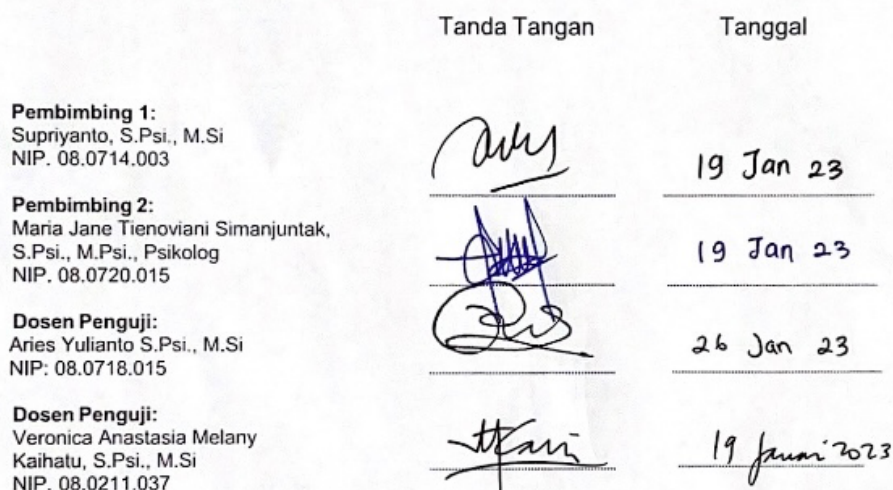 Tanda Tangan Tanggal
Pembimbing 1:
Supriyanto, S.Psi., M.Si
NIP. 08.0714.003
19 Jan 23
Pembimbing 2:
Maria Jane Tienoviani Simanjuntak,
S.Psi., M.Psi., Psikolog
NIP. 08.0720.015
19 Jan 23
Dosen Penguji:
Aries Yulianto S.Psi., M.Si
NIP: 08.0718.015
26 Jan 23
Dosen Penguji:
Veronica Anastasia Melany
Kaihatu, S.Psi., M.Si
NIP. 08.0211.037
19 Januari 2023